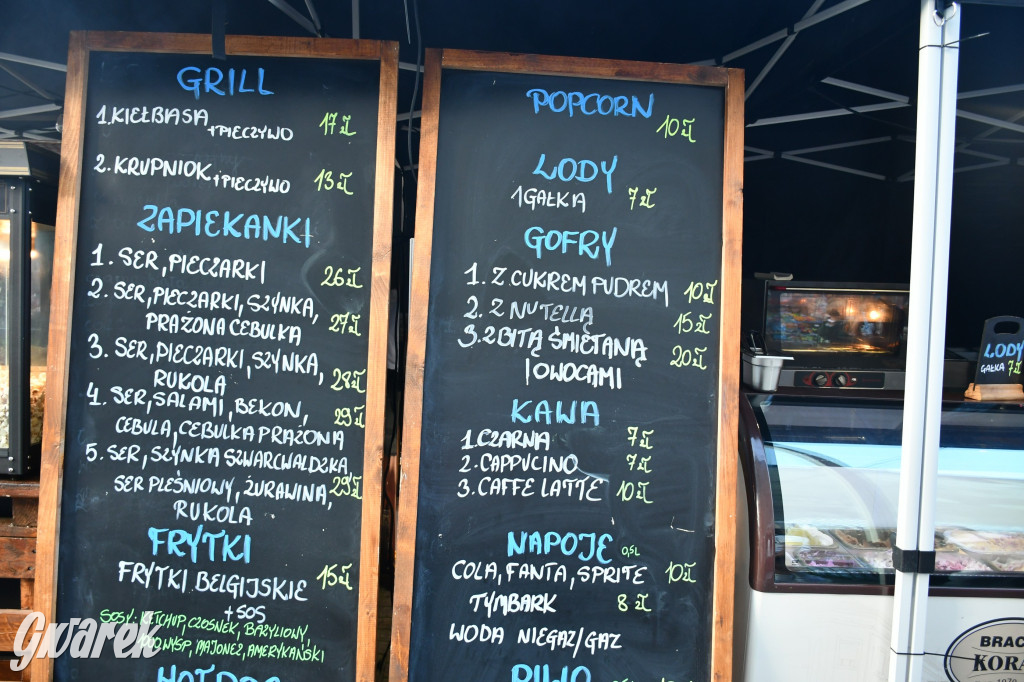 GRILL
1. KIEŁBASA + PIECZYWO 17 zł
2. KRUPNIOK + PIECZYWO 13 zł
ZAPIEKANKI
1. SER, PIECZARKI 26 zł
2. SER, PIECZARKI, SZYNKA,
PRAŻONA CEBULKA 27 zł
3. SER, PIECZARKI, SZYNKA,
RUKOLA 28 zł
4. SER, SALAMI, BEKON, 29 zł
CEBULA, CEBULKA PRAŻONA
5. SER, SZYNKA SZWARCWALDZKA,
SER PLEŚNIOWY, ŻURAWINA, 29 zł
RUKOLA
FRYTKI
FRYTKI BELGIJSKIE 15 zł
+ SOS
SOSY: KETCHUP, CZOSNEK, BAZYLIOWY,
MAJONEZ, AMERYKAŃSKI
HOT DOG
POPCORN
10 zł
LODY
1 GAŁKA 7 zł
GOFRY
1. Z CUKREM PUDREM 10 zł
2. Z NUTELLĄ 15 zł
3. Z BITĄ ŚMIETANĄ 20 zł
I OWOCAMI
KAWA
1. CZARNA 7 zł
2. CAPPUCINO 7 zł
3. CAFFE LATTE 10 zł
NAPOJE 0,5L
COLA, FANTA, SPRITE 10 zł
TYMBARK 8 zł
WODA NIEGAZ/GAZ
PIWO
LODY
GAŁKA 7 zł
BRAC
KORA
1979
Gwarek